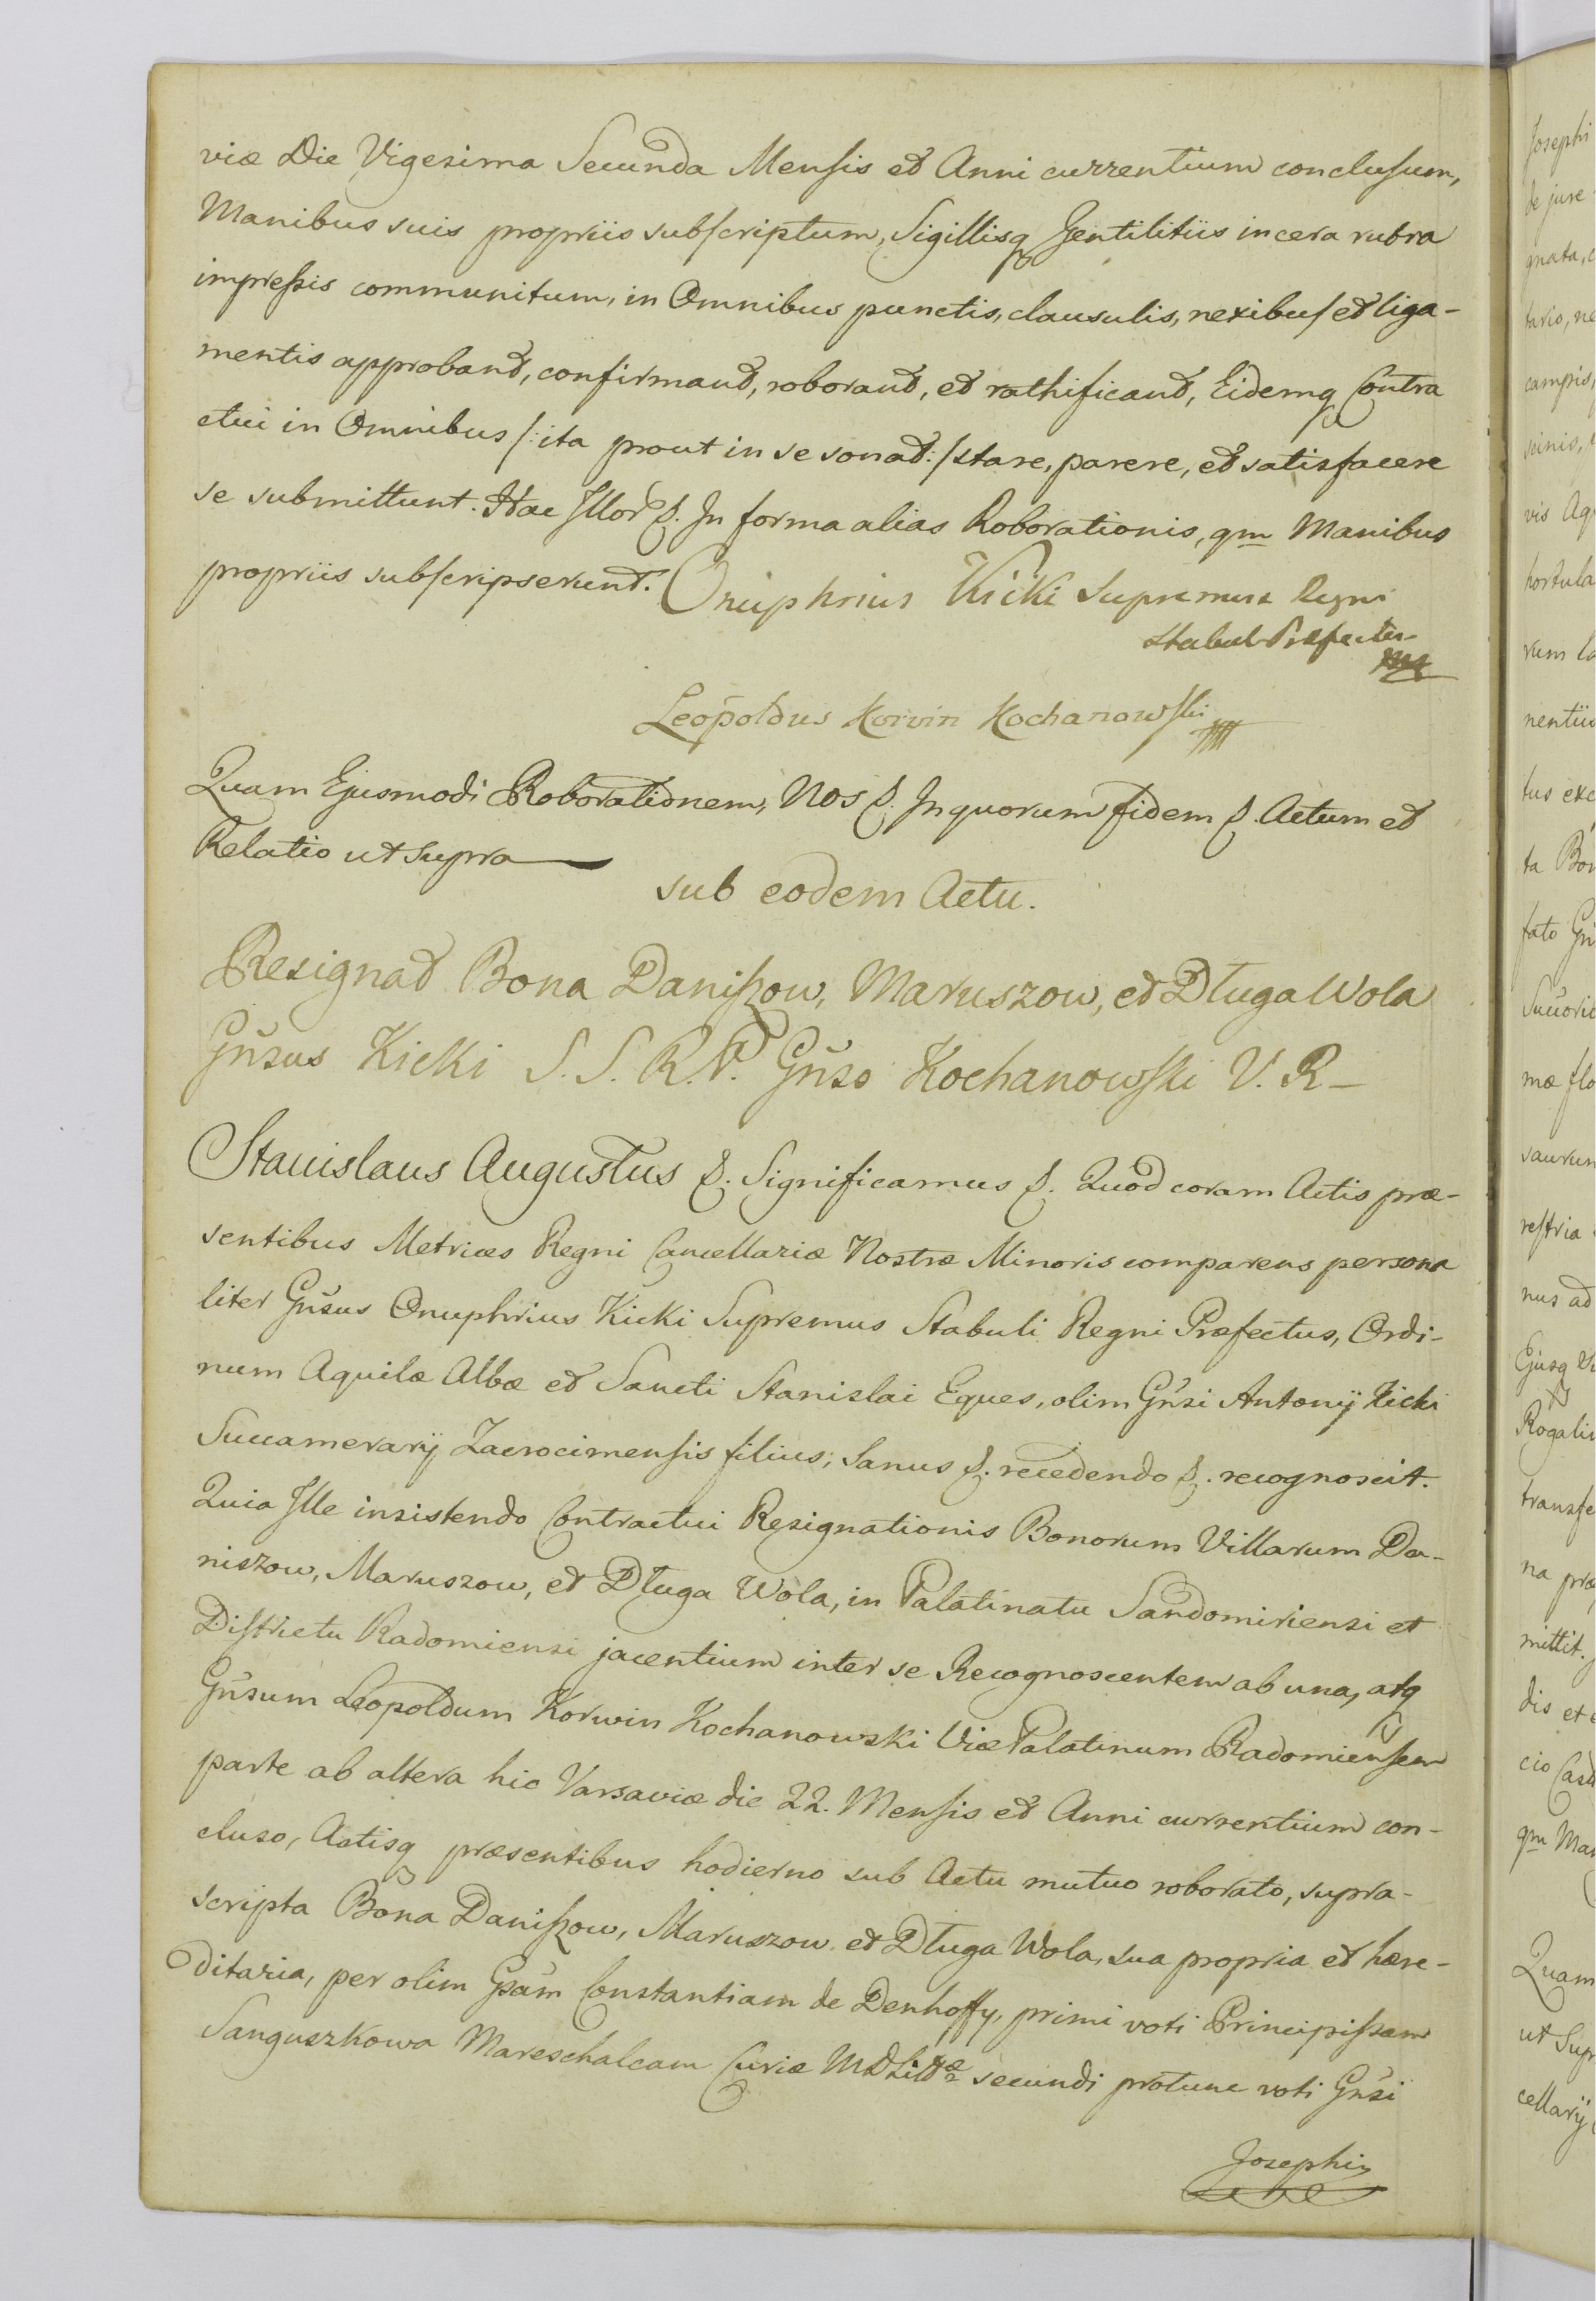 viæ Die Vigesima Secunda Mensis et Anni currentium conclusum,
Manibus suis propriis subscriptum, Sigillisq Gentilitiis in cera rubra
impressis communitum, in Omnibus punctis, clausulis, nexibus et liga-
mentis approband, confirmand, roborand, et rathificand, Eidemq Contra
ctui in Omnibus /: ita prout in se sonat :/ stare, parere, et satisfacere
se submittunt. Hac Illor &. In forma alias Roborationis, qm Manibus
propriis subscripserunt. Onuphrius Kicki Supremus Regni
Stabul Præfectus
Leopoldus Korvin Kochanowski
Quam Ejusmodi Roborationem, Nos &. In quorum fidem &. Actum et
Relatio ut supra
sub eodem Actu.
Resignat Bona Daniszow, Maruszow, et Długa Wola
Gnsus Kicki S. S. R. P. Gnso Kochanowski V. R
Stanislaus Augustus &. Significamus &. Quod coram Actis præ-
sentibus Metrices Regni Cancellariæ Nostræ Minoris comparens persona
liter Gnsus Onuphrius Kicki Supremus Stabuli Regni Præfectus, Ordi-
num Aquilæ Albæ et Sancti Stanislai Eques, olim Gnsi Antonij Kicki
Succamerarij Zacrocimensis filius; Sanus &. recedendo &. recognoscit.
Quia Ille insistendo Contractui Resignationis Bonorum Villarum Da-
niszow, Maruszow, et Długa Wola, in Palatinatu Sandomiriensi et
Districtu Radomiensi jacentium inter se Recognoscentem ab una, atq
Gnsum Leopoldum Korwin Kochanowski Vice Palatinum Radomiensem
parte ab altera hic Varsaviæ die 22. Mensis et Anni currentium con-
cluso, Actisq præsentibus hodierno sub Actu mutuo roborato, supra-
scripta Bona Daniszow, Maruszow et Długa Wola, sua propria et hære-
ditaria, per olim Gsam Constantiam de Denhoffy, primi voti Principissam
Sanguszkowa Mareschalcam Curiæ M D Littæ secundi protunc voti Gnsi
Josephi